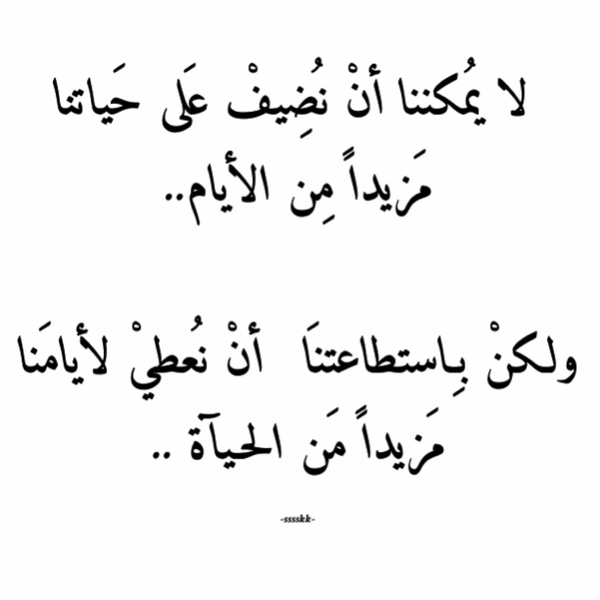 لا يُمكننا أنْ نُضِيفْ عَلى حَياتنا
مَزيداً مِن الأيام..
ولكنْ بِاستطاعتنَا أنْ نُعطيْ لأيامَنا
مَزيداً مَن الحيآة ..
-sssskk-